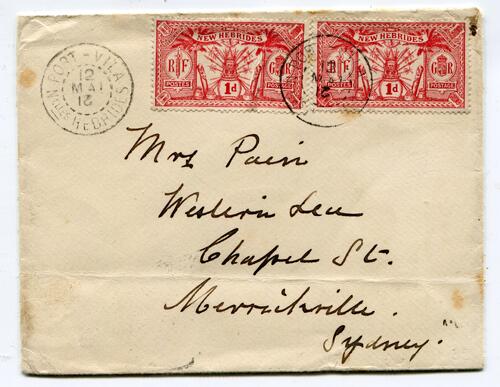 PORT-VILA
12
MAI
13
NLLES HEBRIDES
NEW HEBRIDES
RF
GR
POSTES
1d
POSTAGE
NEW HEBRIDES
RF
GR
POSTES
1d
POSTAGE
12
MAI
Mrs Pain
Western Lea
Chapel St.
Merrickville.
Sydney.